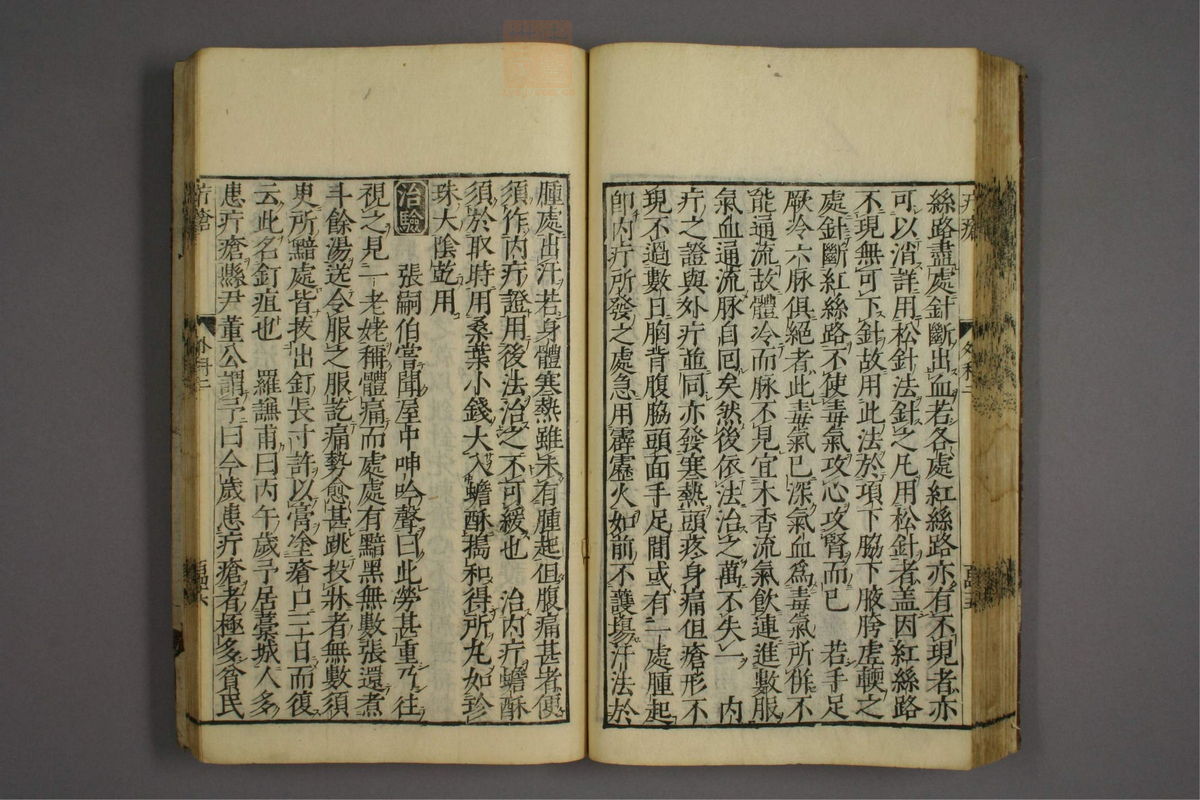 疔瘡
外科二
絲路盡處針斷出血若各處紅絲路亦有不現者亦
可以消詳用松針法針之凢用松針者盖因紅絲路
不現無可下針故用此法於項下脇下腋胯虛輭之
處針斷紅絲路不使毒氣攻心攻腎而已 若手足
厥冷六脉俱絕者此毒氣已深氣血爲毒氣所併不
能通流故體冷而脉不見宜木香流氣飲連進數服
氣血通流脉自回矣然後依法治之萬不失一 內
疔之證與外疔並同亦發寒熱頭疼身痛但瘡形不
現不過數日胸背腹脇頭面手足間或有一處腫起
卽內疔所發之處急用霹靂火如前不護塲汗法於
腫處出汗若身體寒熱雖未有腫起但腹痛甚者便
須作內疔證用後法治之不可緩也 治內疔蟾酥
須於取時用桑葉小錢大入蟾酥搗和得所丸如珍
珠大陰乾用
治驗 張嗣伯嘗聞屋中呻吟聲曰此勞甚重乃往
視之見一老姥稱體痛而處處有黯黑無數張還煮
斗餘湯送令服之服訖痛勢愈甚跳投牀者無數須
臾所黯處皆拔出釘長寸許以膏塗瘡口三日而復
云此名釘疽也 羅謙甫曰丙午歲予居藁城人多
患疔瘡縣尹董公謂予曰今歲患疔瘡者極多貧民
疔瘡
外科二